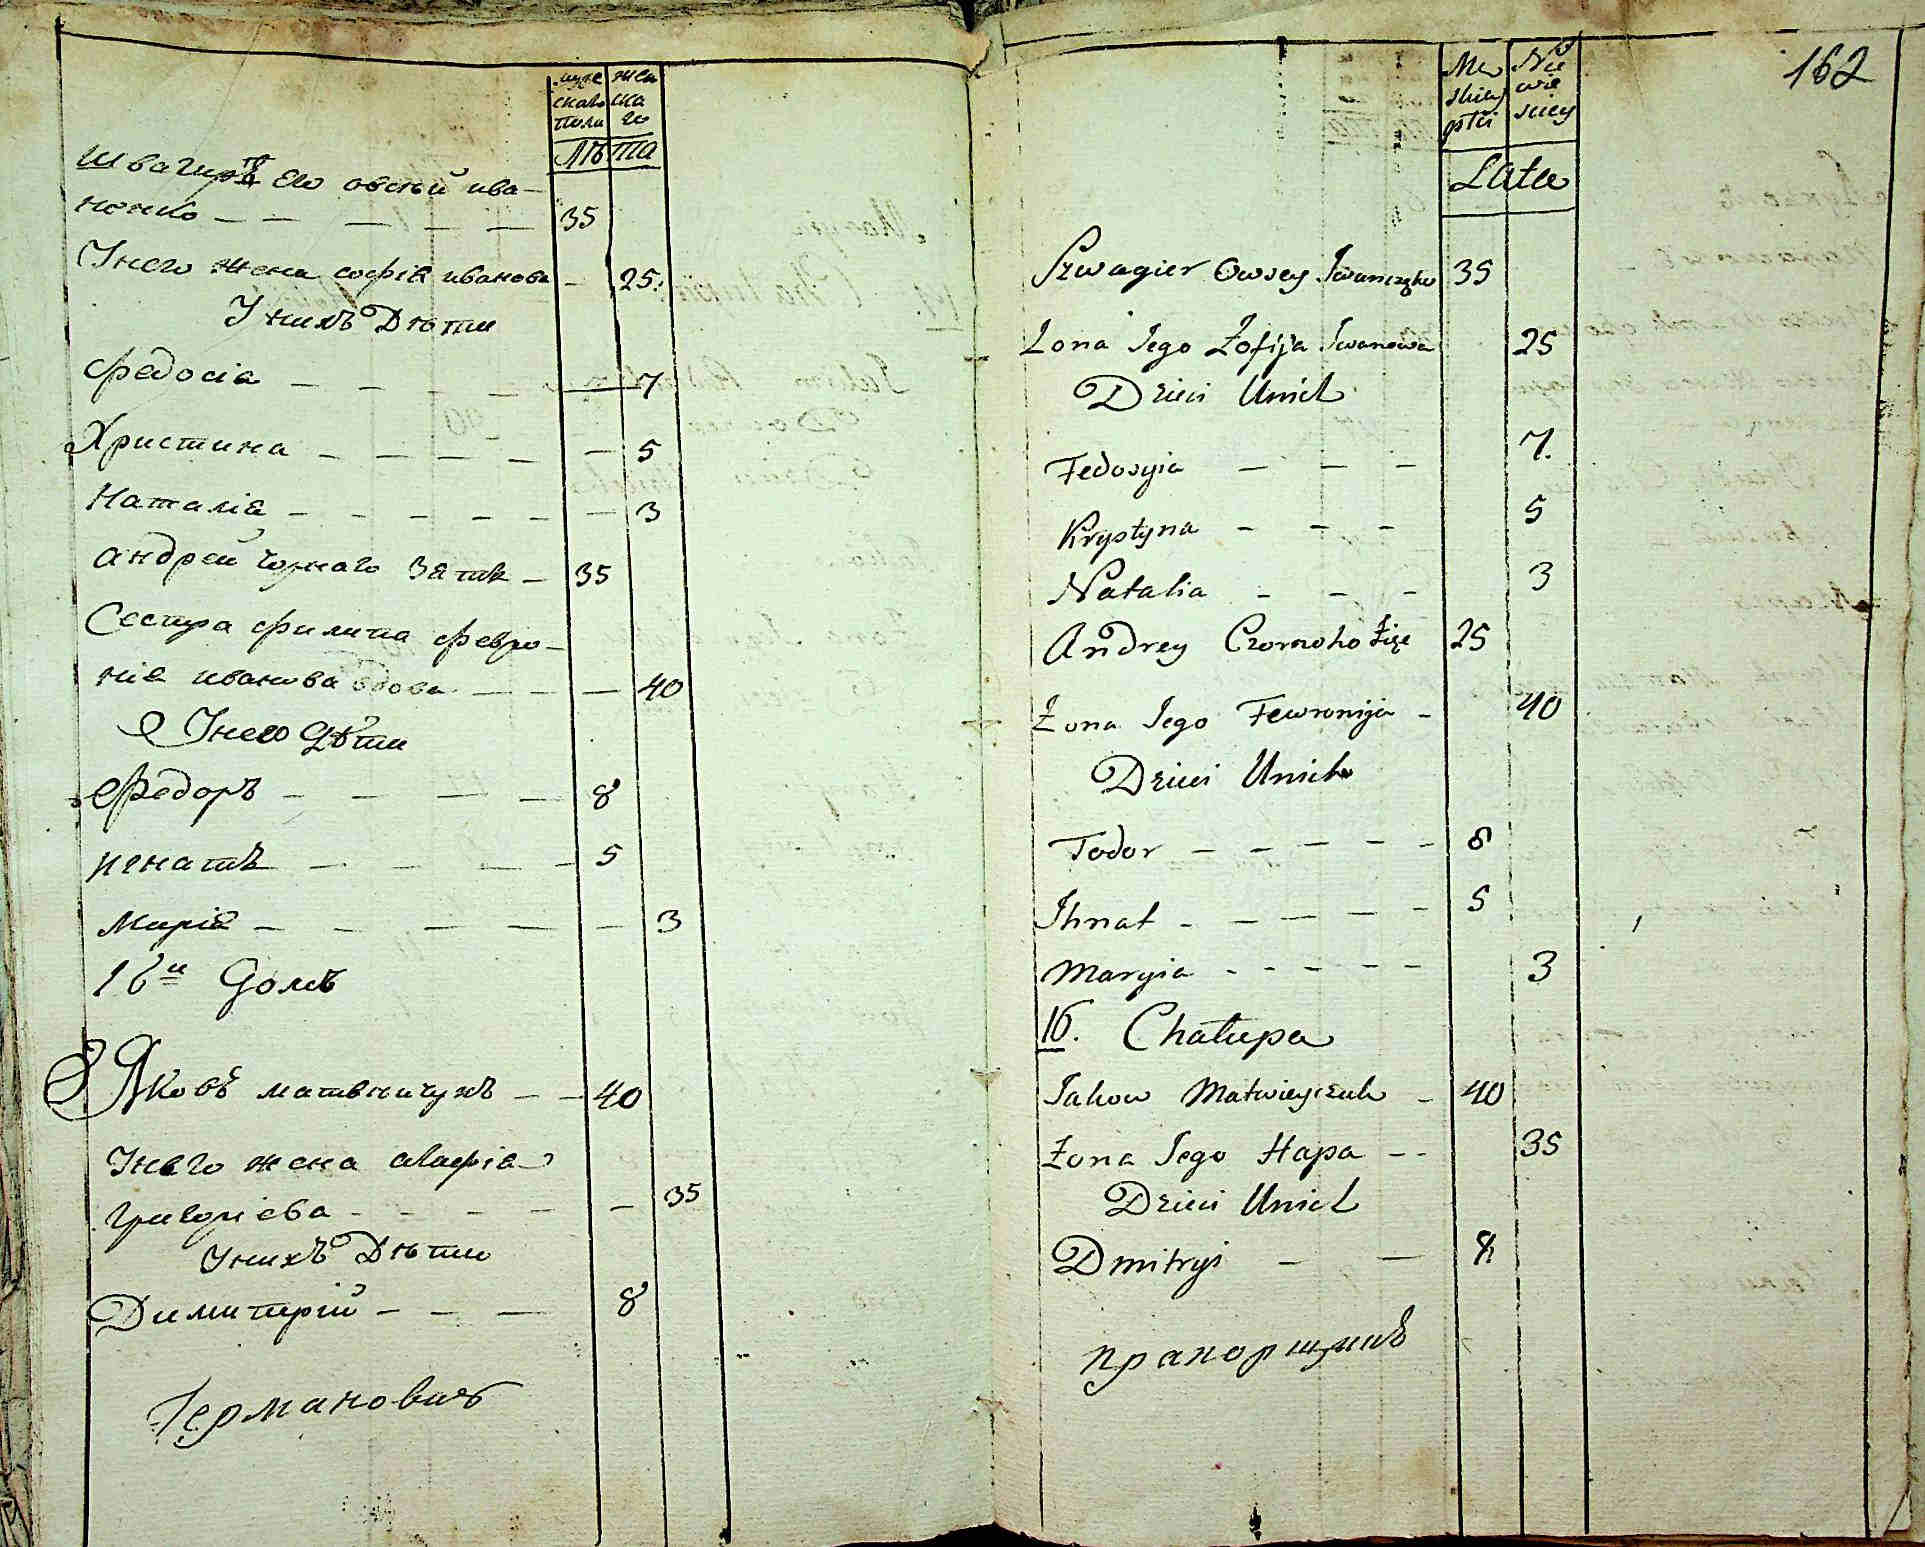 муже жен
скаго ска
полу го
Лѣта
Швагиръ его овсѣй ива-
ненко - - - - - 35
Унего жена софія иванова - 25
Унихъ Дѣти
Федосія - - - - 7
Христина - - - - - 5
Наталія - - - - - - 3
андрей чорнаго Зять - 35
Сестра филипа февро-
нія иванова вдова - - - 40
Унею Дѣти
Федоръ - - - - 8
игнатъ - - - - 5
Марія - - - - - - 3
16й Домъ
Яковъ матвѣйчукъ - - 40
Унего жена агафія
григоріева - - - - - - 35
Унихъ Дѣти
Димитрій - - - 8
Германовичъ
162
Mę Nie
skiey wie
płci sciey
Lata
Szwagier Owsey Iwanczęko 35
Zona Jego Zofija Iwanowa 25
Dzieci Unich
Fedosyia - - - 7.
Krystyna - - - 5
Natalia - - - 3
Andrey Czornoho Zięc 25
Żona Jego Fewronija - 40
Dzieci Unich
Todor - - - - - 8
Ihnat - - - - - 5
Maryia - - - - - 3
16. Chałupa
Jakow Matwieyczuk - 40
Żona Jego Hapa - - 35
Dzieci Unich
Dmitryi - - 8.
прапорщикъ